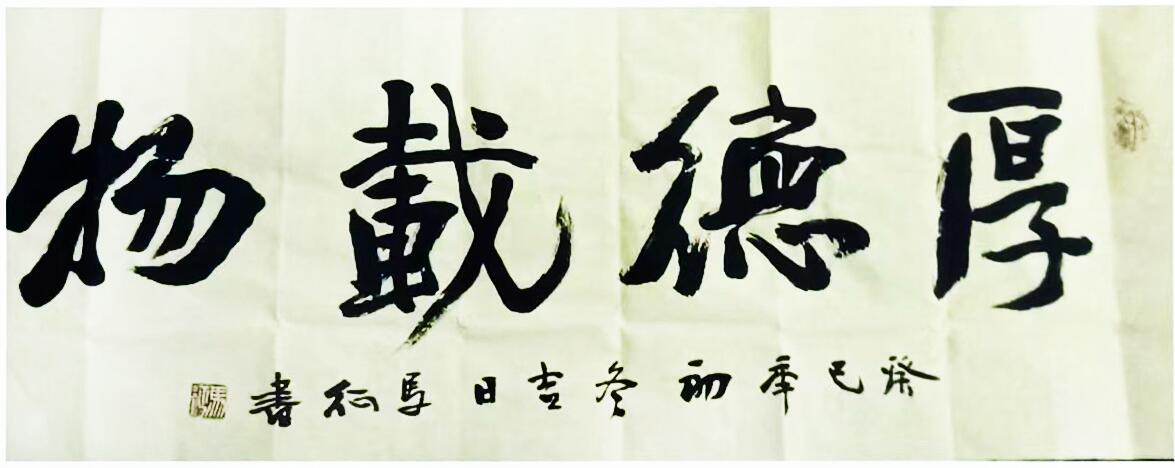 厚德載物
癸巳年初冬吉日馬書